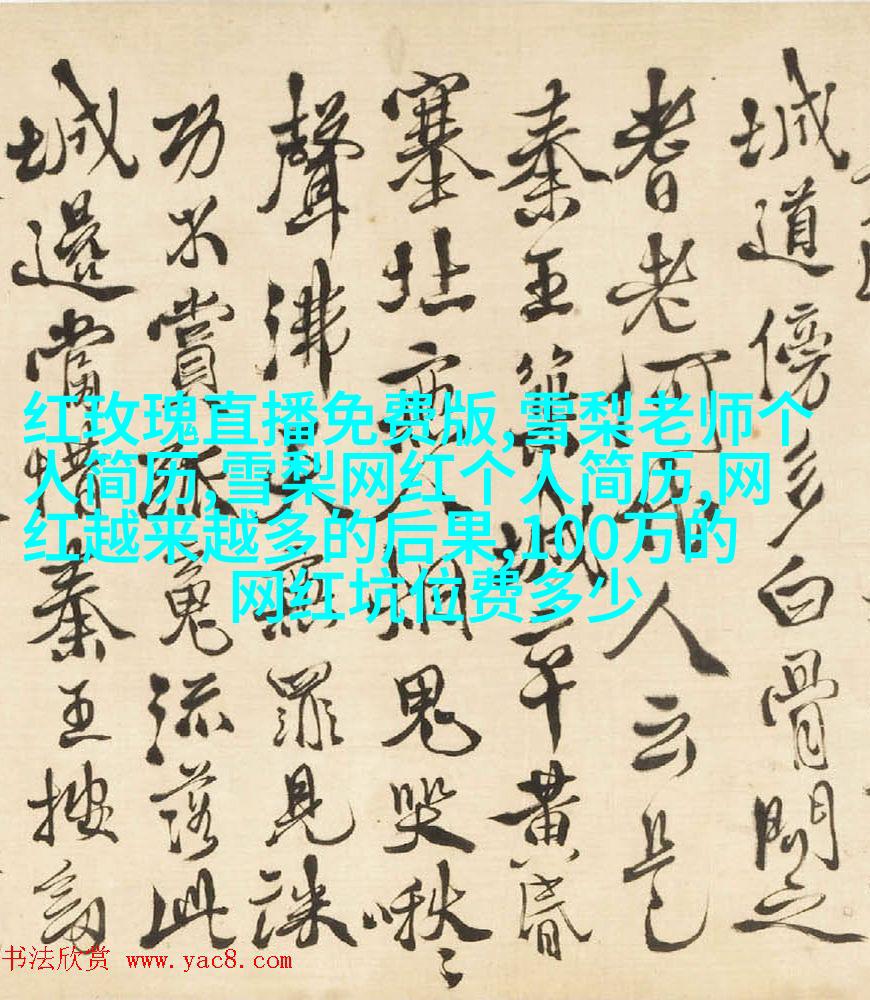 城道傍多白骨問之
耆老何代人云是
秦王築城卒黃昏
塞北無人烟鬼哭啾〻
聲沸天無罪見誅
功不賞孤魂流落此
城邊當昔秦王按劍
红玫瑰直播免费版,雪梨老师个
人简历,雪梨网红个人简历,网
红越来越多的后果,100万的
网红坑位费多少
书法欣赏 www.yac8.com